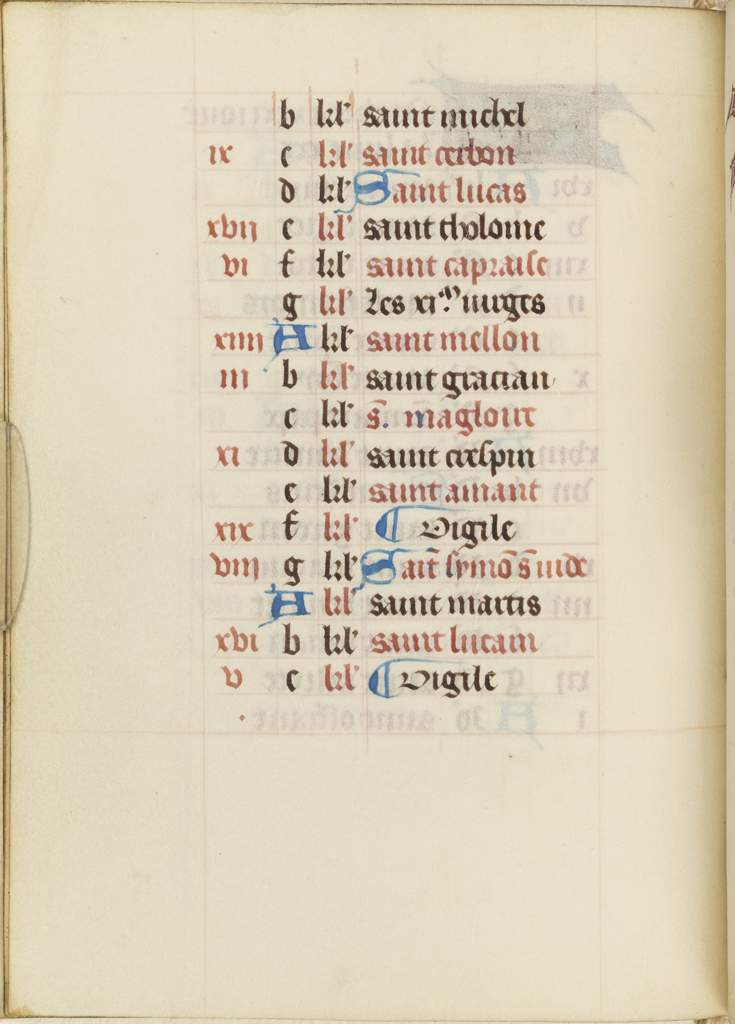 b kl' saint michel
ix c kl' saint cerbon
d kl' Saint lucas
xvij e kl' saint tholome
vi f kl' saint capraise
g kl' Les xi.ᵐ virges
xiiij A kl' saint mellon
iij b kl' saint gracian
c kl' s. magloire
xi d kl' saint crespin
e kl' saint amant
xix f kl' Vigile
viij g kl' Sait symō s iude
A kl' saint martis
xvi b kl' saint lucain
v c kl' Vigile